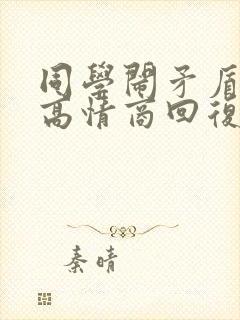 同學鬧矛盾
高情商回復
秦晴